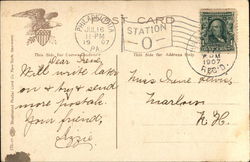 POST CARD
PHILADELPHIA
JUL 16
11-PM
1907
PA
STATION
O
This Side for Correspondence
This Side for Address Only
1907
REC'D.
Dear Irene,
Will write later
on & try & send
more postals.
Your friend,
Lizzie
Miss Irene
Marlow
N. H.